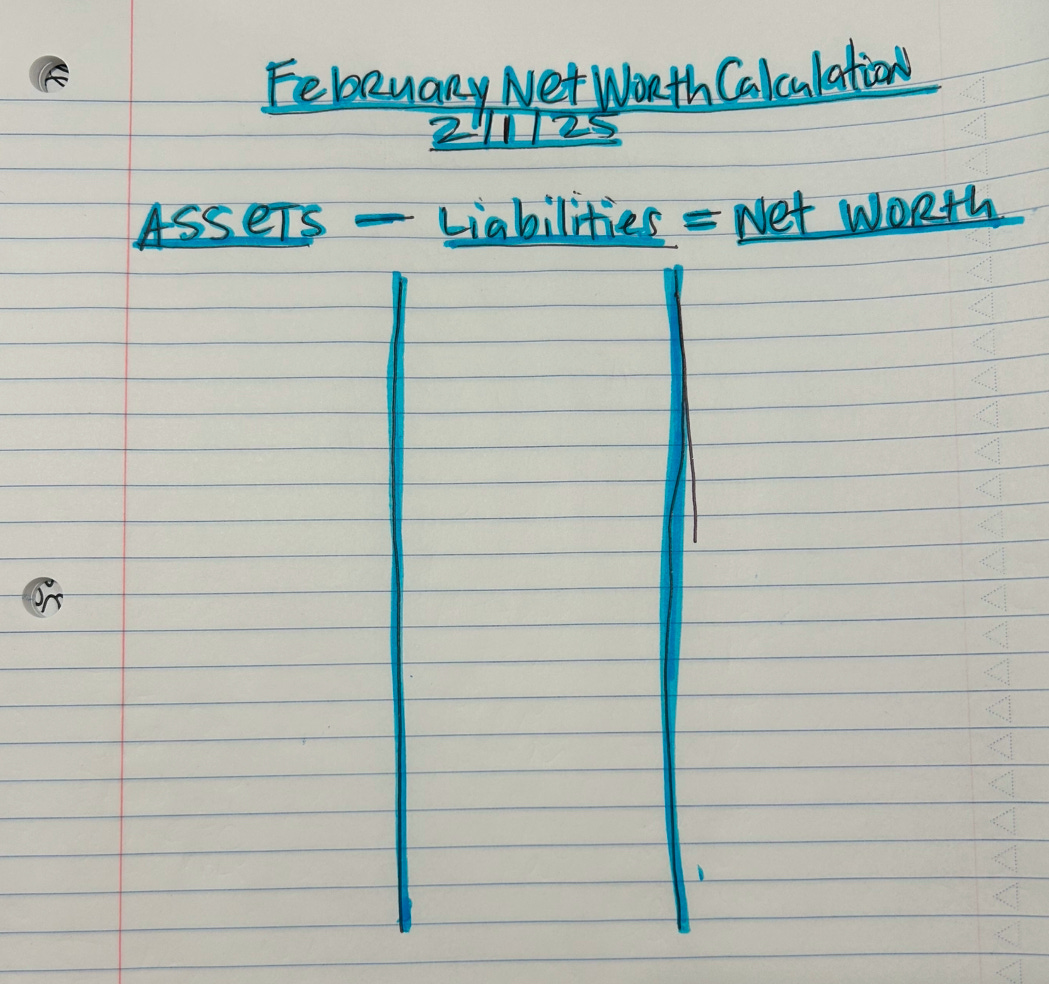 February Net Worth Calculation
2/1/25
Assets - Liabilities = Net Worth